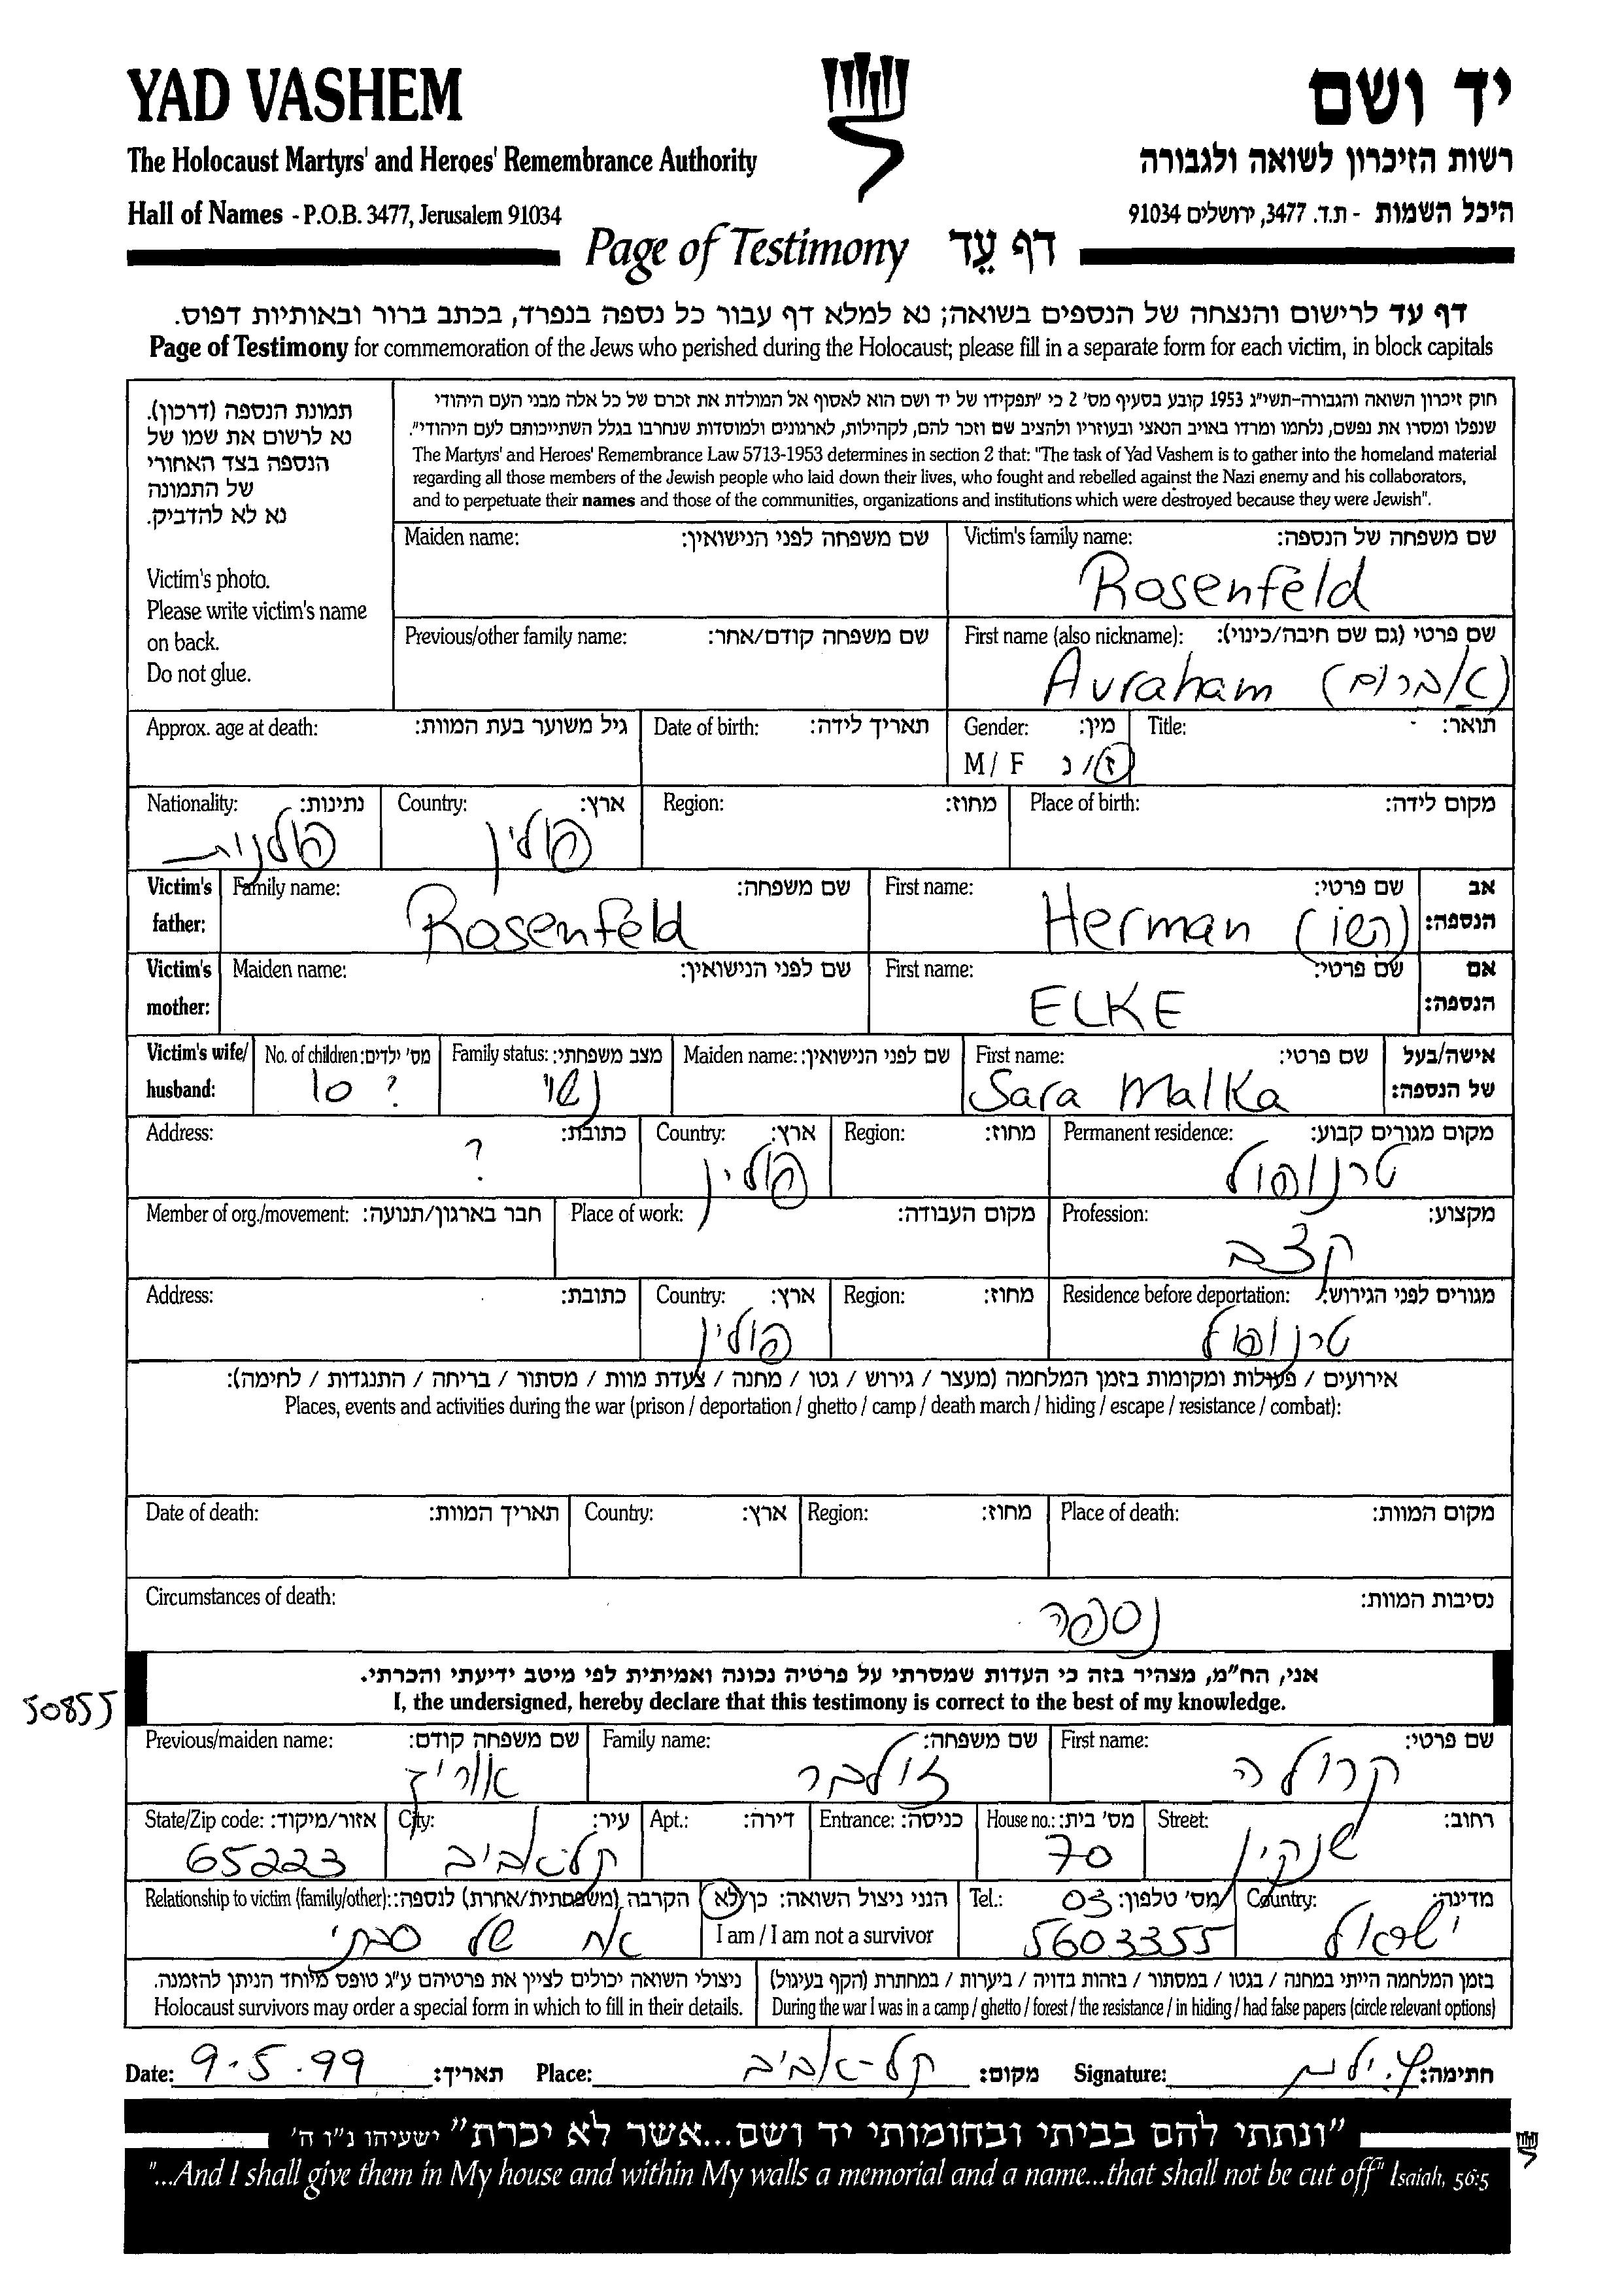 YAD VASHEM
יד ושם
The Holocaust Martyrs' and Heroes' Remembrance Authority
רשות הזיכרון לשואה ולגבורה
Hall of Names - P.O.B. 3477, Jerusalem 91034
היכל השמות - ת.ד. 3477, ירושלים 91034
Page of Testimony דף עֵד
דף עד לרישום והנצחה של הנספים בשואה; נא למלא דף עבור כל נספה בנפרד, בכתב ברור ובאותיות דפוס.
Page of Testimony for commemoration of the Jews who perished during the Holocaust; please fill in a separate form for each victim, in block capitals
תמונת הנספה (דרכון).
נא לרשום את שמו של
הנספה בצד האחורי
של התמונה
נא לא להדביק.
Victim's photo.
Please write victim's name
on back.
Do not glue.
חוק זיכרון השואה והגבורה-תשי"ג 1953 קובע בסעיף מס' 2 כי "תפקידו של יד ושם הוא לאסוף אל המולדת את זכרם של כל אלה מבני העם היהודי
שנפלו ומסרו את נפשם, נלחמו ומרדו באויב הנאצי ובעוזריו ולהציב שם וזכר להם, לקהילות, לארגונים ולמוסדות שנחרבו בגלל השתייכותם לעם היהודי".
The Martyrs' and Heroes' Remembrance Law 5713-1953 determines in section 2 that: "The task of Yad Vashem is to gather into the homeland material
regarding all those members of the Jewish people who laid down their lives, who fought and rebelled against the Nazi enemy and his collaborators,
and to perpetuate their names and those of the communities, organizations and institutions which were destroyed because they were Jewish".
Maiden name: שם משפחה לפני הנישואין: Victim's family name: שם משפחה של הנספה:
Rosenfeld
Previous/other family name: שם משפחה קודם/אחר: First name (also nickname): שם פרטי (גם שם חיבה/כינוי):
Avraham (אברום)
Approx. age at death: גיל משוער בעת המוות: Date of birth: תאריך לידה: Gender: מין: Title: תואר:
M / F ז/נ
Nationality: נתינות: Country: ארץ: Region: מחוז: Place of birth: מקום לידה:
פולנית פולין
Victim's father: Family name: שם משפחה: First name: שם פרטי: אב הנספה:
Rosenfeld Herman (הרש)
Victim's mother: Maiden name: שם לפני הנישואין: First name: שם פרטי: אם הנספה:
ELKE
Victim's wife/ husband: No. of children: מס' ילדים: Family status: מצב משפחתי: Maiden name: שם לפני הנישואין: First name: שם פרטי: אישה/בעל של הנספה:
10 ? נשוי Sara Malka
Address: כתובת: Country: ארץ: Region: מחוז: Permanent residence: מקום מגורים קבוע:
? פולין טרנופול
Member of org./movement: חבר בארגון/תנועה: Place of work: מקום העבודה: Profession: מקצוע:
קצב
Address: כתובת: Country: ארץ: Region: מחוז: Residence before deportation: מגורים לפני הגירוש:
פולין טרנופול
אירועים / פעולות ומקומות בזמן המלחמה (מעצר / גירוש / גטו / מחנה / צעדת מוות / מסתור / בריחה / התנגדות / לחימה):
Places, events and activities during the war (prison / deportation / ghetto / camp / death march / hiding / escape / resistance / combat):
Date of death: תאריך המוות: Country: ארץ: Region: מחוז: Place of death: מקום המוות:
Circumstances of death: נסיבות המוות:
נספה
אני, הח"מ, מצהיר בזה כי העדות שמסרתי על פרטיה נכונה ואמיתית לפי מיטב ידיעתי והכרתי.
I, the undersigned, hereby declare that this testimony is correct to the best of my knowledge.
50855
Previous/maiden name: שם משפחה קודם: Family name: שם משפחה: First name: שם פרטי:
זולבר קרולה
State/Zip code: אזור/מיקוד: City: עיר: Apt.: דירה: Entrance: כניסה: House no.: מס' בית: Street: רחוב:
65223 תל אביב 70 שנקין
Relationship to victim (family/other): הקרבה (משפחתית/אחרת) לנספה: הנני ניצול השואה: כן/לא Tel.: מס' טלפון: 03 Country: מדינה:
אח של סבתי I am / I am not a survivor 5603355 ישראל
ניצולי השואה יכולים לציין את פרטיהם ע"ג טופס מיוחד הניתן להזמנה. בזמן המלחמה הייתי במחנה / בגטו / במסתור / בזהות בדויה / ביערות / במחתרת (הקף בעיגול)
Holocaust survivors may order a special form in which to fill in their details. During the war I was in a camp / ghetto / forest / the resistance / in hiding / had false papers (circle relevant options)
Date: 9.5.99 תאריך: Place: תל-אביב מקום: Signature: חתימה:
"ונתתי להם בביתי ובחומותי יד ושם...אשר לא יכרת" ישעיהו נ"ו ה'
"...And I shall give them in My house and within My walls a memorial and a name...that shall not be cut off" Isaiah, 56:5